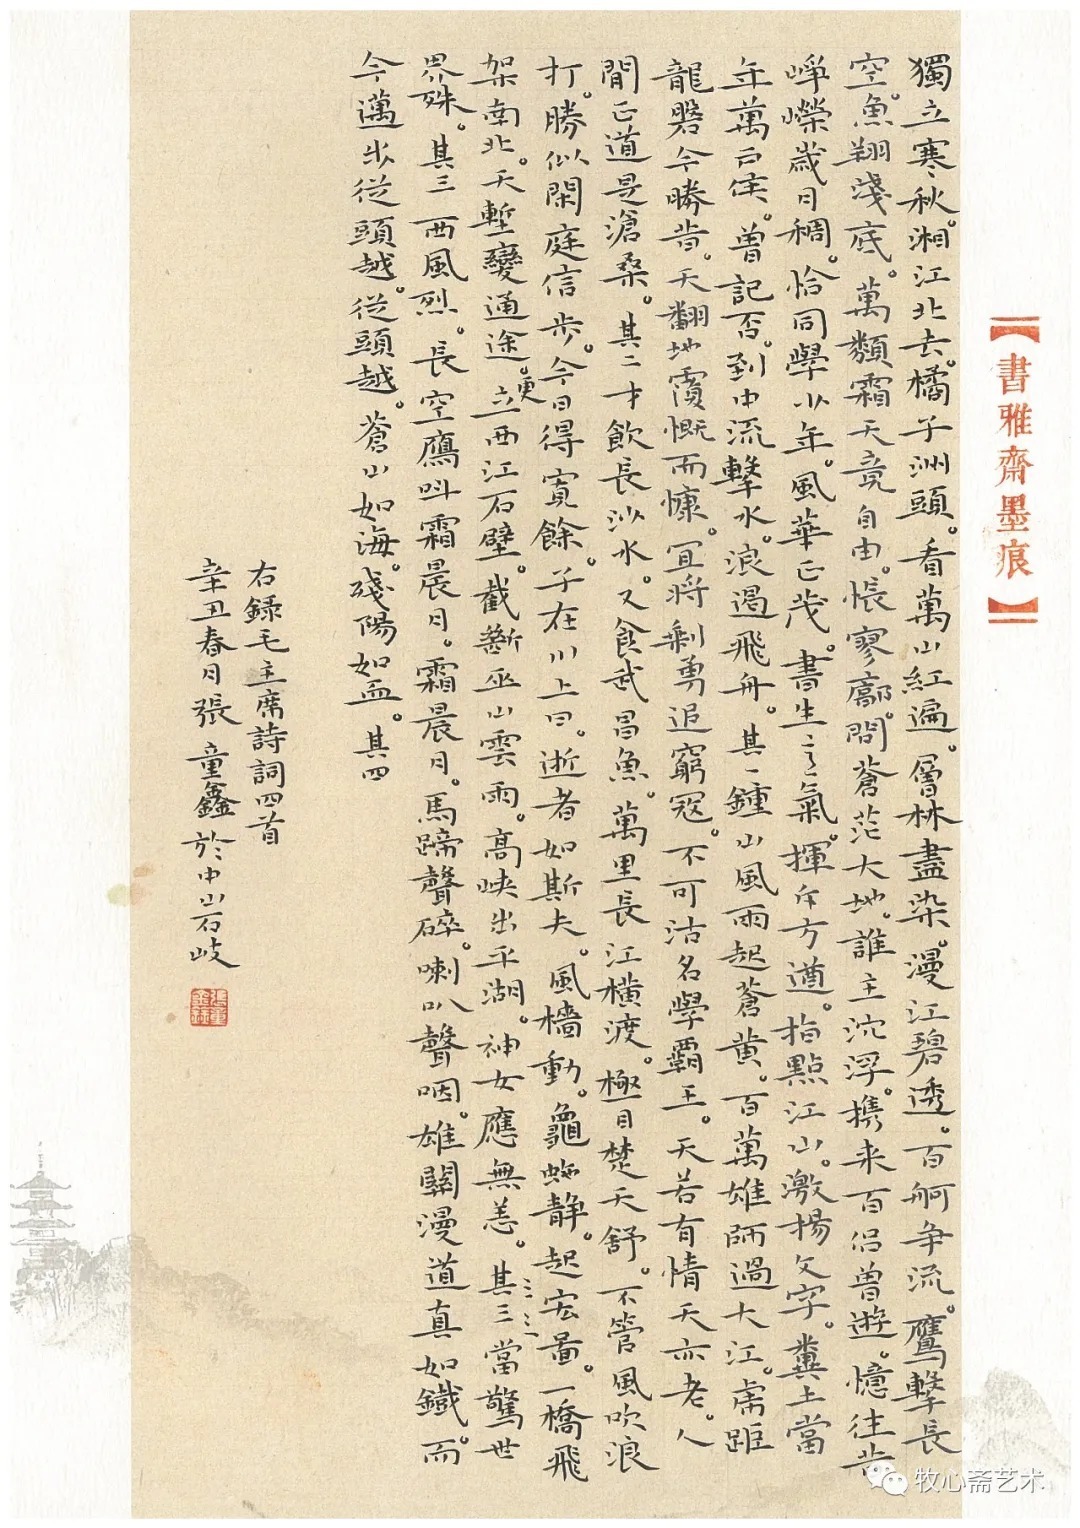 獨立寒秋。湘江北去。橘子洲頭。看萬山紅遍。層林盡染。漫江碧透。百舸争流。鷹擊長
空。魚翔淺底。萬類霜天竟自由。悵寥廓。問蒼茫大地。誰主沉浮。携来百侣曾遊。憶往昔
崢嶸歲月稠。恰同學少年。風華正茂。書生意氣。揮斥方遒。指點江山。激揚文字。糞土當
年萬戶侯。曾記否。到中流擊水。浪遏飛舟。其一 鍾山風雨起蒼黄。百萬雄師過大江。虎距
龍磐今勝昔。天翻地覆慨而慷。宜將剩勇追窮寇。不可沽名學霸王。天若有情天亦老。人
間正道是滄桑。其二 才飲長沙水。又食武昌魚。萬里長江橫渡。極目楚天舒。不管風吹浪
打。勝似閑庭信步。今日得寬餘。子在川上曰。逝者如斯夫。風檣動。龜蛇静。起宏圖。一橋飛
架南北。天塹變通途。更立西江石壁。截斷巫山雲雨。高峡出平湖。神女應無恙。其三 當驚世
界殊。其三 西風烈。長空鷹叫霜晨月。霜晨月。馬蹄聲碎。喇叭聲咽。雄關漫道真如鐵。而
今邁步從頭越。從頭越。蒼山如海。殘陽如血。其四
右録毛主席詩詞四首
辛丑春月張童鑫於中山石岐
【書雅齋墨痕】
牧心斋艺术